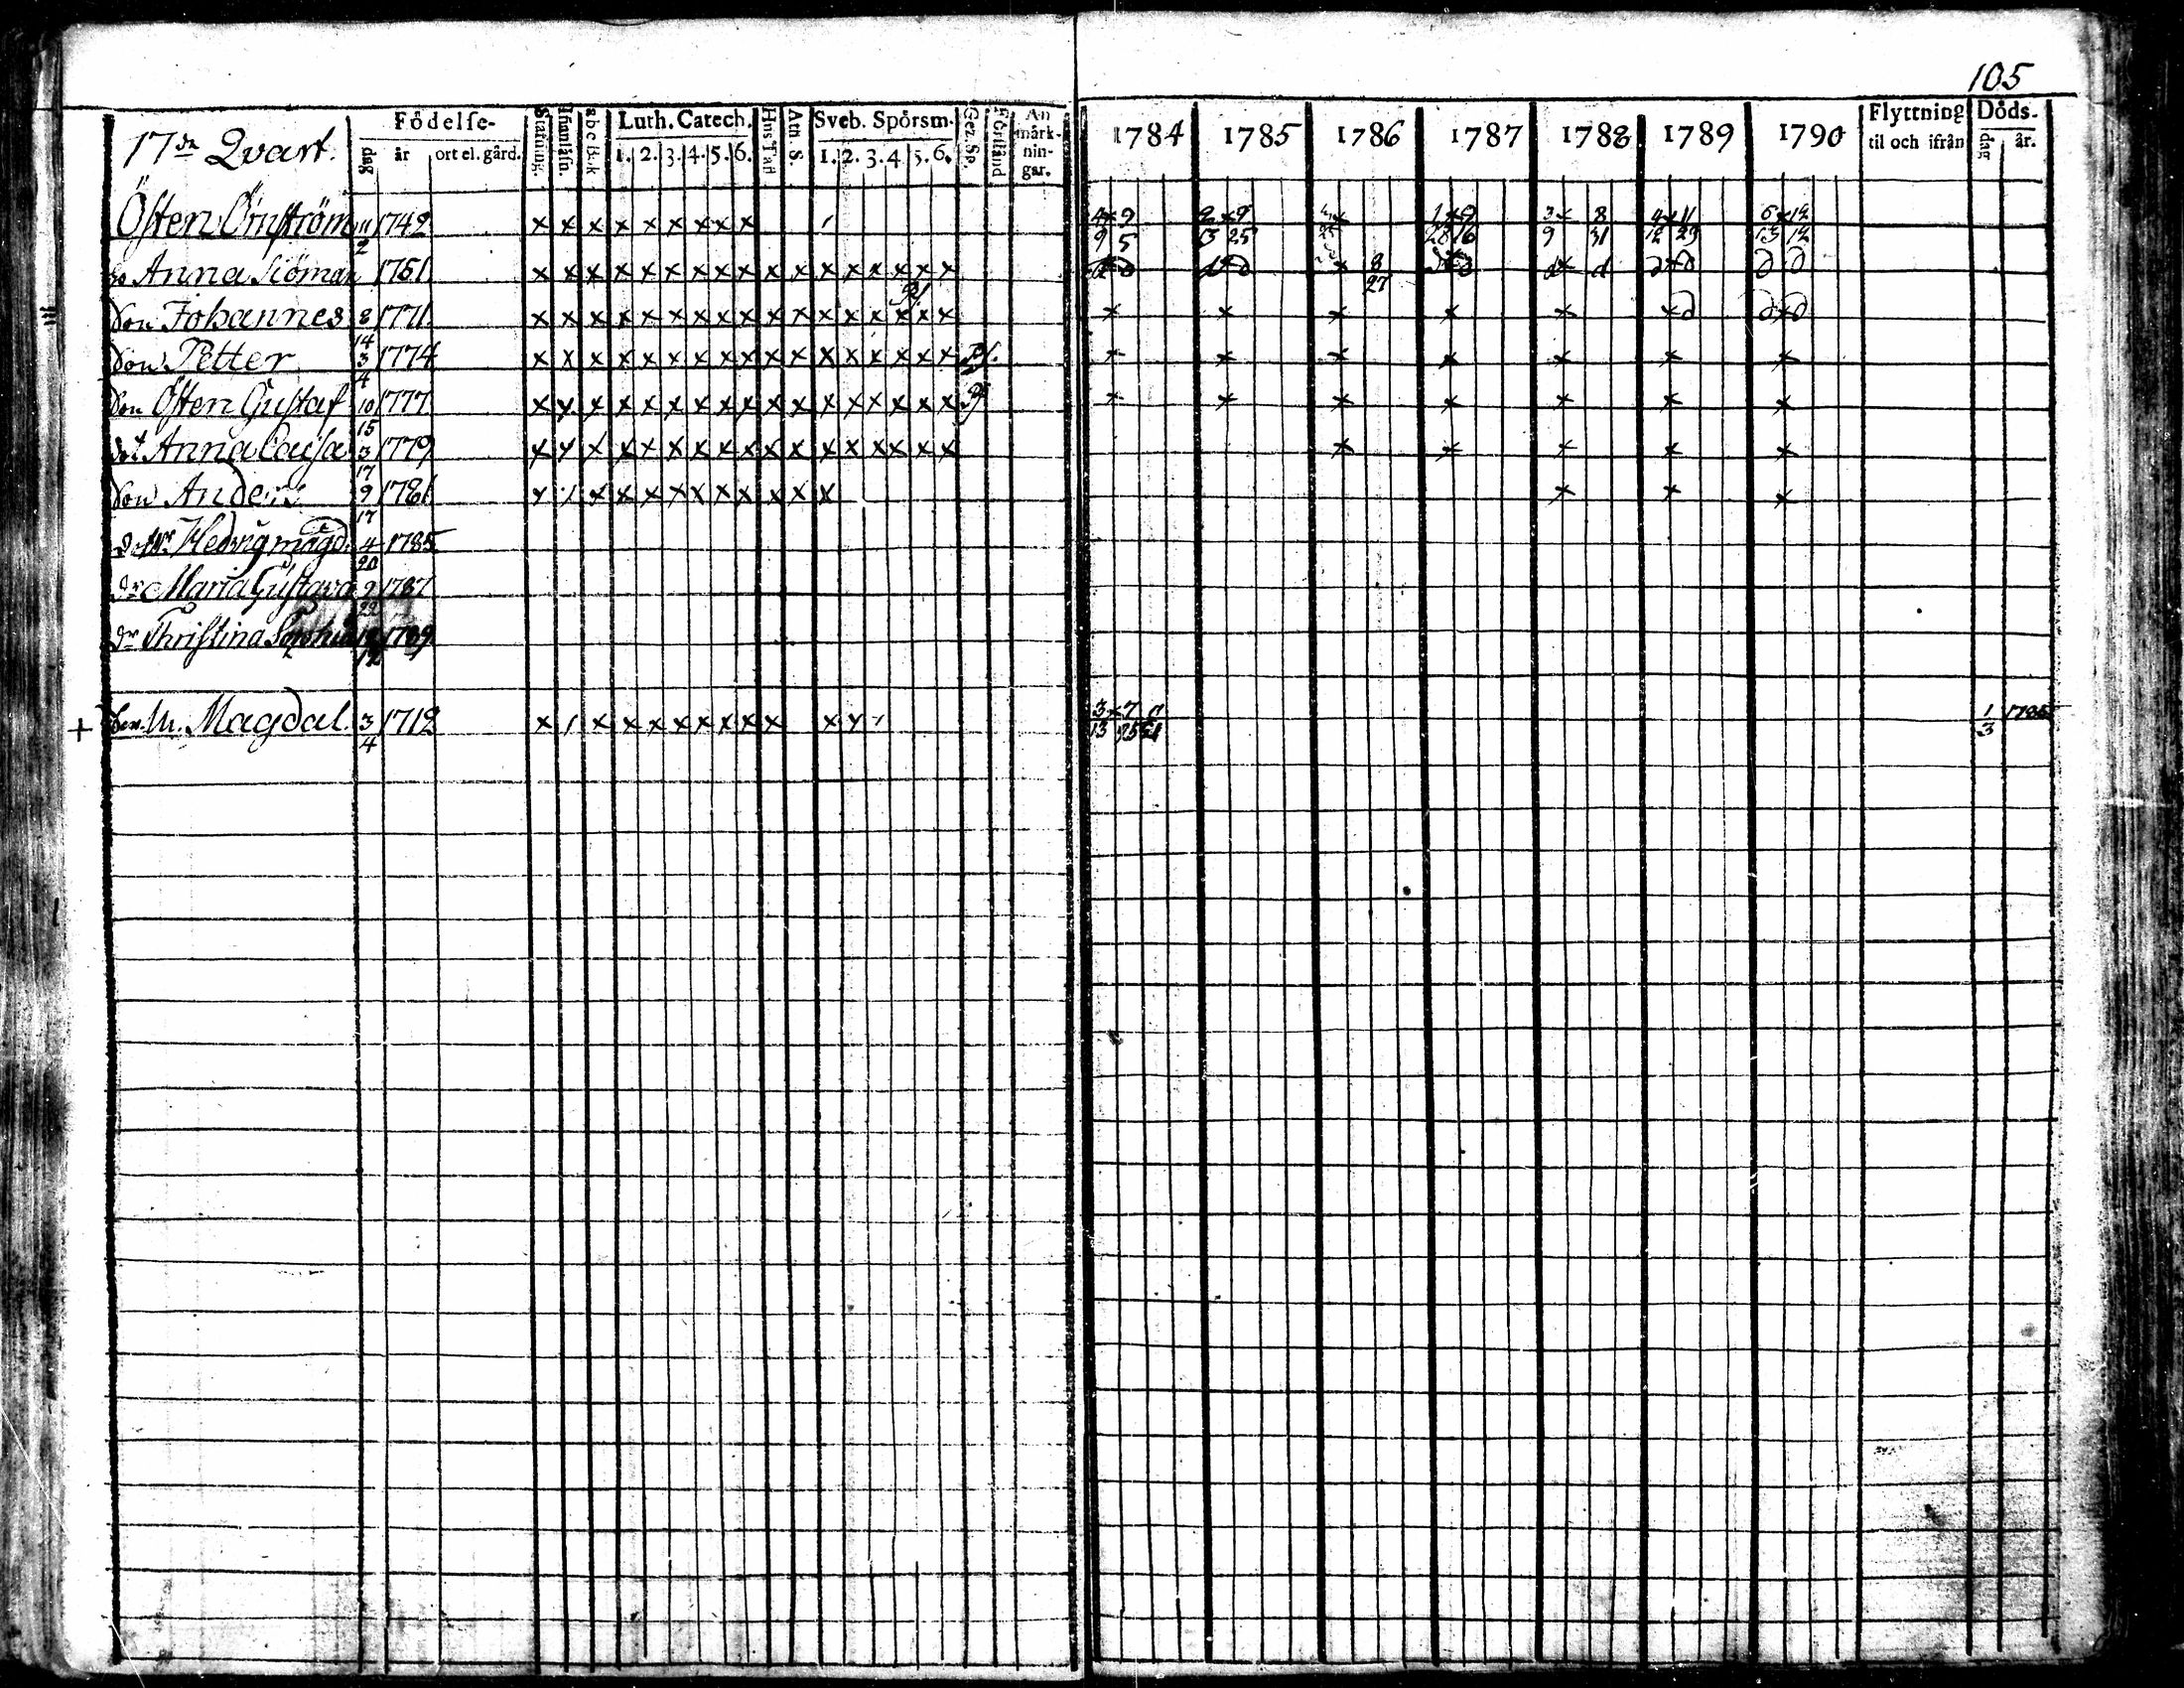 105
Födelse- Stafning Luth. Catech. Hus Tafl Ath. S. Sveb. Spörsm. Gez. Sp. Förstånd An märk- nin- gar. 1784 1785 1786 1787 1788 1789 1790 Flyttning til och ifrån Döds- dag år.
17de Qvart. dag år ort el. gård. 1. 2. 3. 4. 5. 6. 1. 2. 3. 4 5. 6.
Östen Örnström 11/2 1742 x x x x x x x x x 4 x 9 2 x 9 x 1 x 9 3 x 8 4 x 11 6 x 12
9 5 13 25 9 31 12 29 13 12
Anna Siöman 1751 x x x x x x x x x x x x x x x x x d x d d x d x 8/27 d x d d x d d x d d d
Son Johannes 8/14 1771 x x x x x x x x x x x x x x x x x x x x x x x d d x d
Son Petter 3/4 1774 x x x x x x x x x x x x x x x x x x x x x x x x
Son Östen Gustaf 10/15 1777 x x x x x x x x x x x x x x x x x x x x x x x x
dot Anna Caisa 3/17 1779 x x x x x x x x x x x x x x x x x x x x x x
Son Anders 9/17 1781 x x x x x x x x x x x x x x
Hedvig magd. 4/20 1785
dr Maria Gustava 9/22 1787
dr Christina Sophia 12/12 1789
+ M. Magdal. 3/4 1712 x / x x x x x x x x x y 3 x 7 1/3 1785
13 25